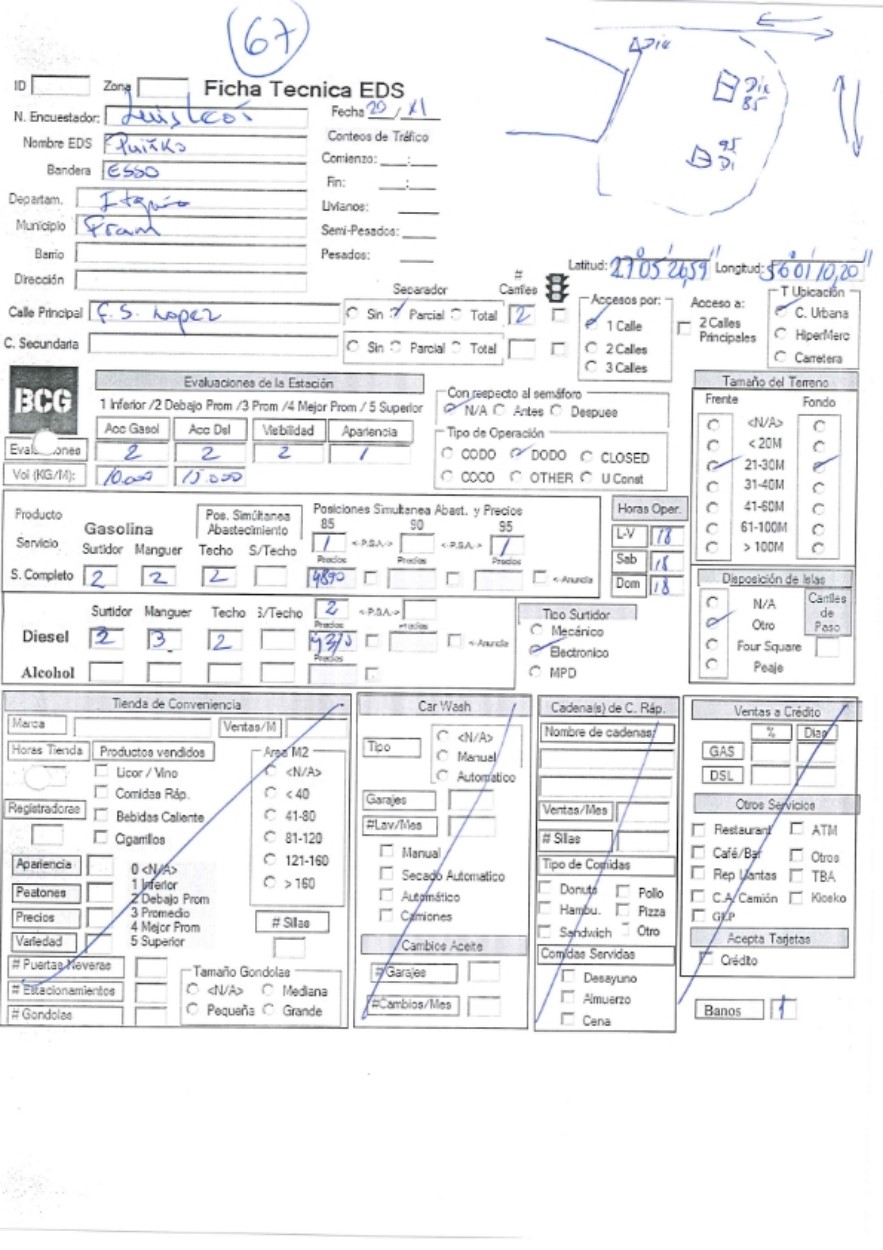 67
Die
Die
85
95
Di
ID Zona Ficha Tecnica EDS
N. Encuestador: Luis Leó Fecha 20 / XI
Nombre EDS Puiñko Conteos de Tráfico
Bandera ESSO Comienzo: __:__
Fin: __:__
Departam. Itapúa Livianos:
Municipio Fram Semi-Pesados:
Barrio Pesados:
Dirección
Latitud: 27° 05' 26,59'' Longitud: 56° 01' 10,20''
Separador # Carriles
Calle Principal C. S. Lopez Sin Parcial Total 2
C. Secundaria Sin Parcial Total
Accesos por:
1 Calle
2 Calles
3 Calles
Acceso a:
2 Calles Principales
T Ubicación
C. Urbana
HiperMerc
Carretera
BCG
Evaluaciones de la Estación
1 Inferior /2 Debajo Prom /3 Prom /4 Mejor Prom / 5 Superior
Acc Gasol Acc Dsl Visibilidad Apariencia
Evaluaciones 2 2 2 1
Vol (KG/M): 10.000 15.000
Con respecto al semáforo
N/A Antes Despues
Tipo de Operación
CODO DODO CLOSED
COCO OTHER U Const
Tamaño del Terreno
Frente Fondo
<N/A>
< 20M
21-30M
31-40M
41-60M
61-100M
> 100M
Producto Gasolina Pos. Simúltanea Abastecimiento
Servicio Surtidor Manguer Techo S/Techo
S. Completo 2 2 2
Posiciones Simultanea Abast. y Precios
85 90 95
1 <-P.S.A.-> <-P.S.A.-> 1
Precios Precios Precios
4890 <-Anuncia
Horas Oper.
L-V 18
Sab 18
Dom 18
Surtidor Manguer Techo S/Techo 2 <-P.S.A.->
Precios Precios
Diesel 2 3 2 <-Anuncia
Precios
Alcohol
Tipo Surtidor
Mecánico
Electronico
MPD
Disposición de Islas
N/A
Otro
Four Square
Peaje
Carriles de Paso
Tienda de Conveniencia
Marca Ventas/M
Horas Tienda Productos vendidos
Licor / Vino
Comidas Ráp.
Bebidas Caliente
Cigarrillos
Registradoras
Area M2
<N/A>
< 40
41-80
81-120
121-160
> 160
Apariencia
Peatones
Precios
Variedad
0 <N/A>
1 Inferior
2 Debajo Prom
3 Promedio
4 Mejor Prom
5 Superior
# Sillas
# Puertas Neveras
# Estacionamientos
# Gondolas
Tamaño Gondolas
<N/A> Mediana
Pequeña Grande
Car Wash
Tipo
<N/A>
Manual
Automatico
Garajes
#Lav/Mes
Manual
Secado Automatico
Automático
Camiones
Cambios Aceite
# Garajes
#Cambios/Mes
Cadena(s) de C. Ráp.
Nombre de cadenas:
Ventas/Mes
# Sillas
Tipo de Comidas
Donuts Pollo
Hambu. Pizza
Sandwich Otro
Comidas Servidas
Desayuno
Almuerzo
Cena
Ventas a Crédito
% Dias
GAS
DSL
Otros Servicios
Restaurant ATM
Café/Bar Otros
Rep Llantas TBA
C.A. Camión Kiosko
GLP
Acepta Tarjetas
Crédito
Banos 1